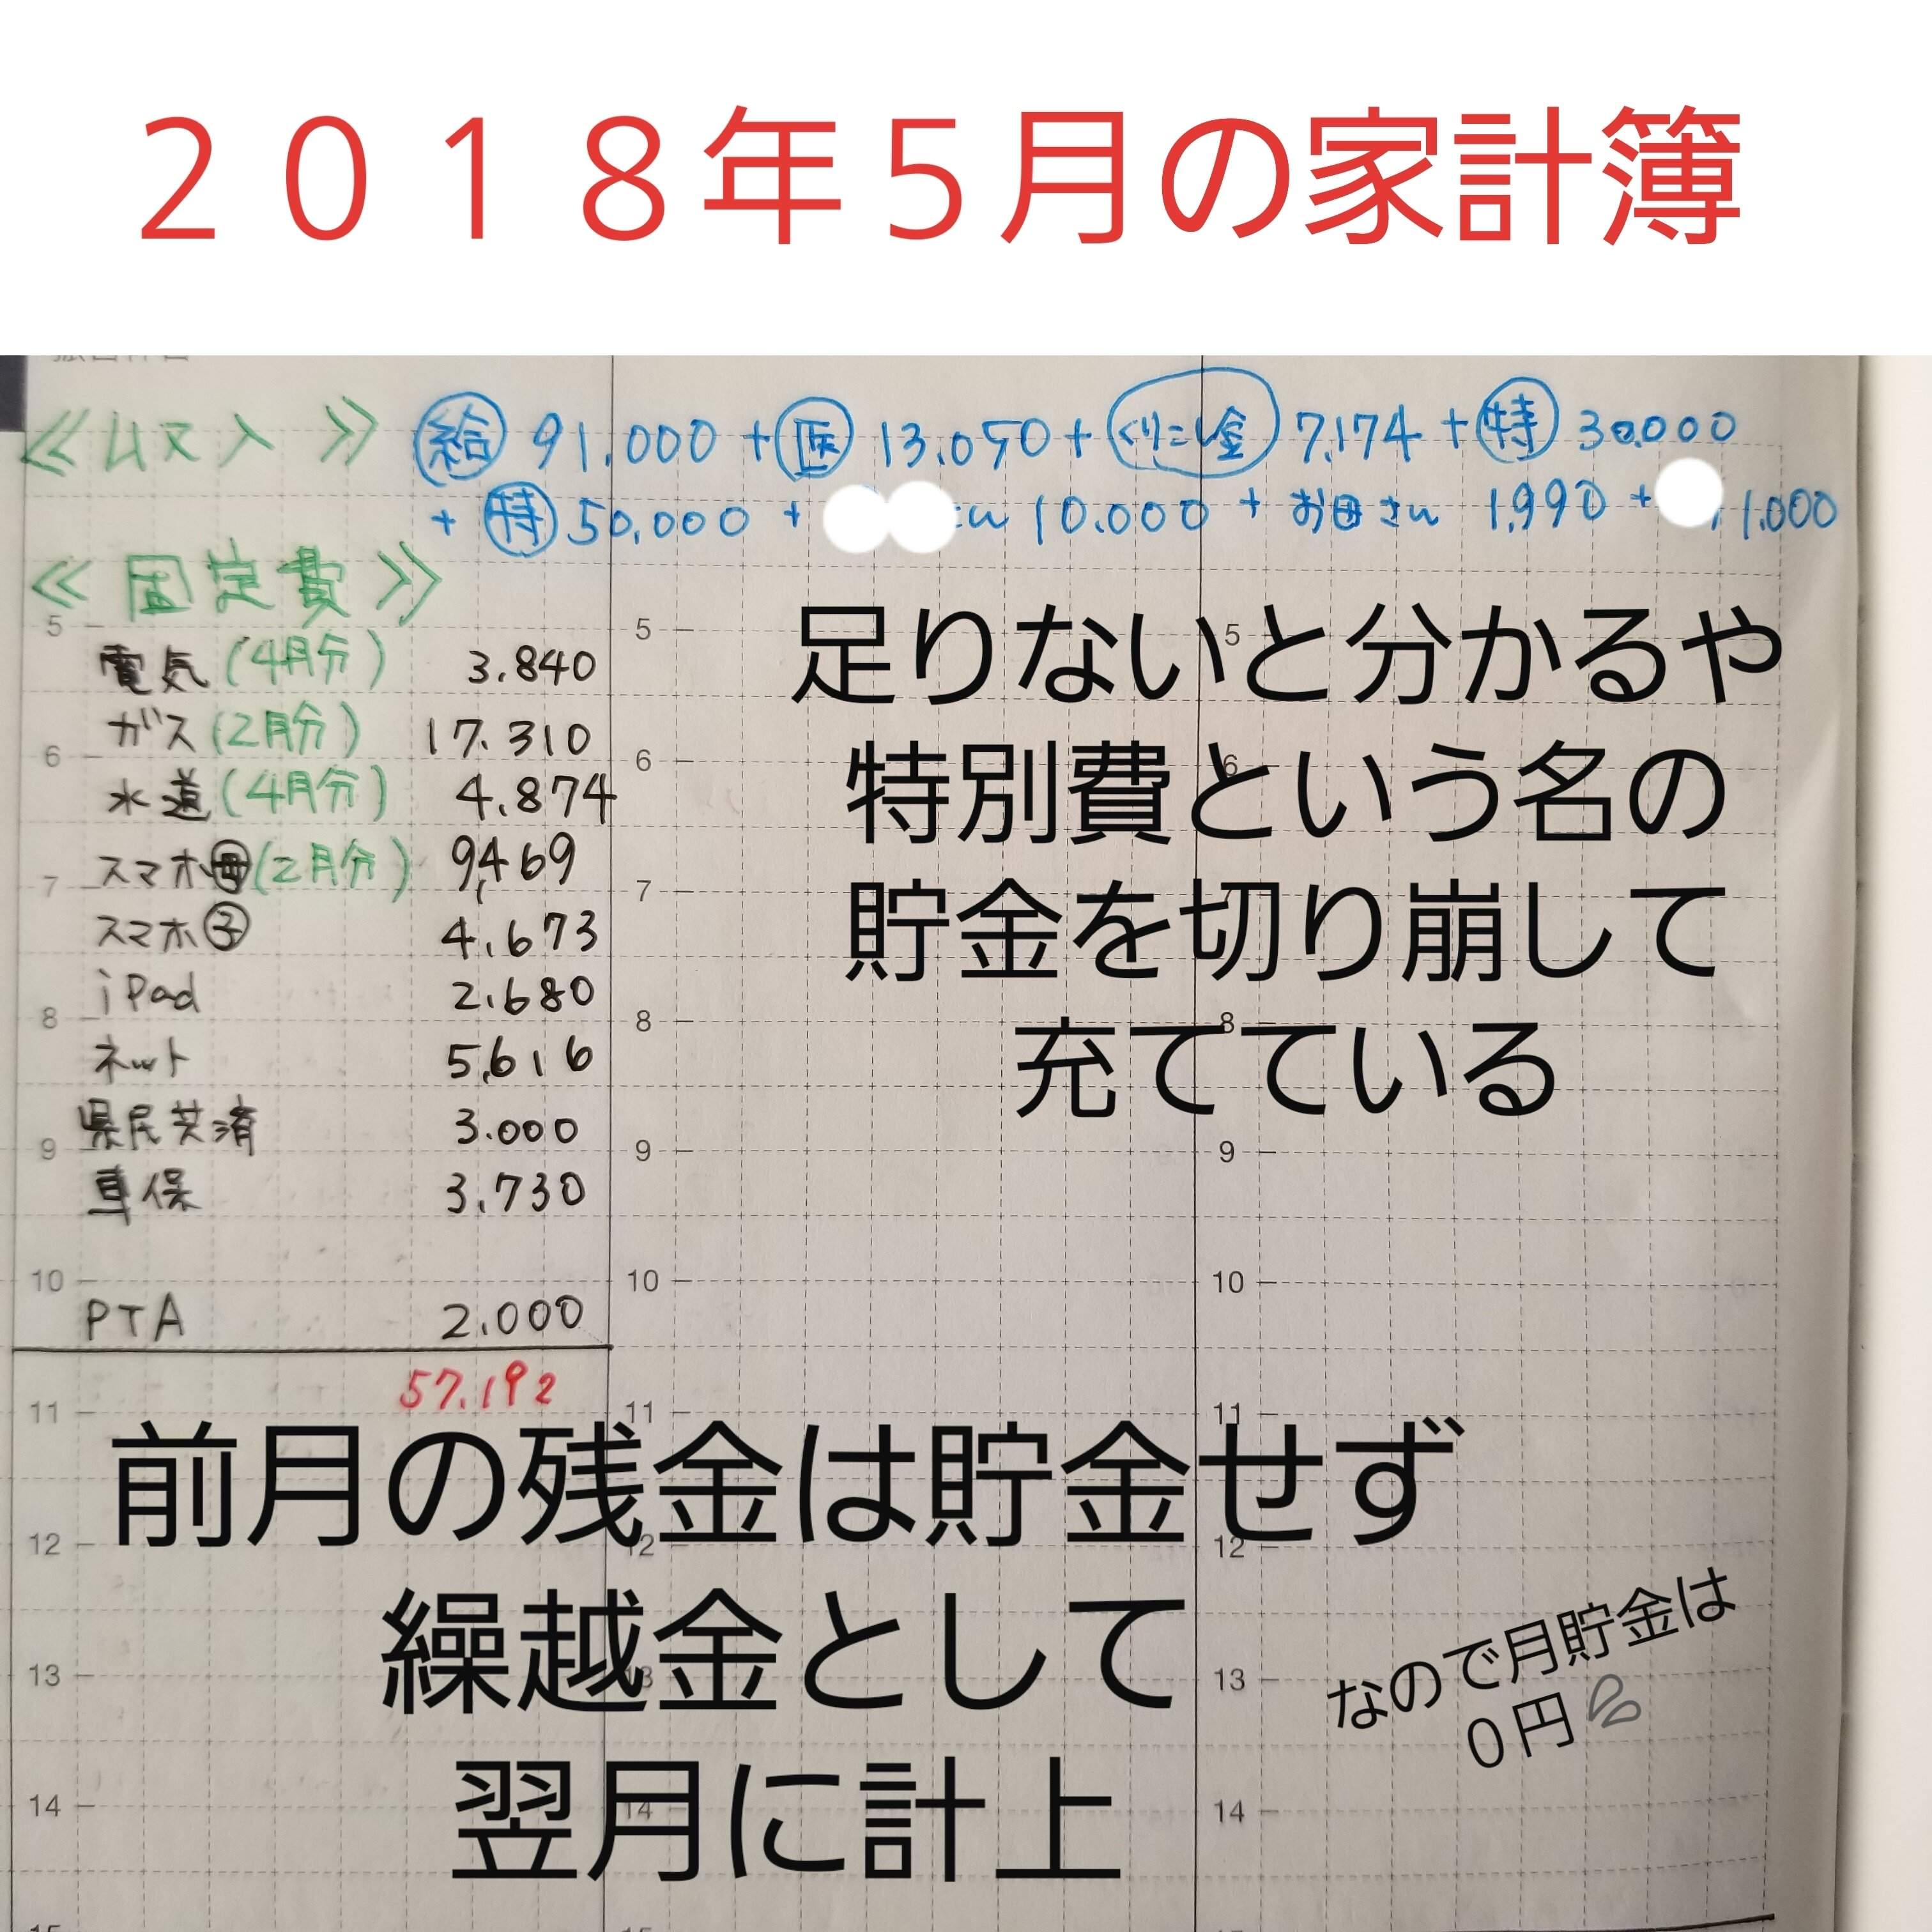 ２０１８年５月の家計簿
≪収入≫ 給 91.000 + 医 13.090 + くりこし金 7,174 + 特 30.000
+ 特 50,000 + さん 10.000 + お母さん 1,990 + 1.000
≪固定費≫
足りないと分かるや
特別費という名の
貯金を切り崩して
充てている
電気(4月分) 3.840
ガス(2月分) 17.310
水道(4月分) 4.874
スマホ母(2月分) 9,469
スマホ子 4.673
iPad 2.680
ネット 5,616
県民共済 3.000
車保 3.730
PTA 2.000
57.192
前月の残金は貯金せず
繰越金として
翌月に計上
なので月貯金は
０円💦
5 5 5
6 6 6
7 7
8 8 8
9 9 9
10 10 10
11 11 11
12 12 12
13 13 13
14 14 14